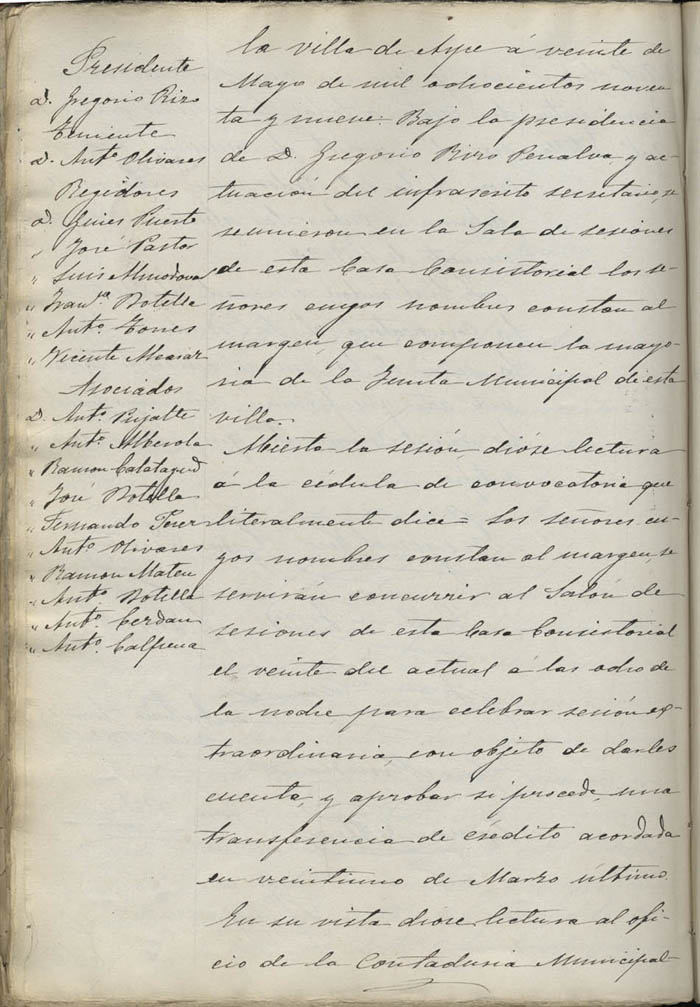 Presidente
D. Gregorio Rizo
Teniente
D. Antº Olivares
Regidores
D. Gines Puerto
" José Pastor
" Luis Almodovar
" Franco Botella
" Antº Torres
" Vicente
Asociados
D. Antº Pujalte
" Antº Alberola
" Ramon Calatayud
" José Botella
" Fernando Perez
" Antº Olivares
" Ramon Mateu
" Antº Botella
" Antº Cerdan
" Antº Calpena
la villa de Aspe á veinte de
Mayo de mil ochocientos noven
ta y nueve. Bajo la presidencia
de D. Gregorio Rizo Penalva y ac-
tuación del infrascrito secretario, se
reunieron en la Sala de sesiones
de esta Casa Consistorial los se-
ñores cuyos nombres constan al
margen, que componen la mayo-
ria de la Junta Municipal de esta
villa.
Abierta la sesión, diose lectura
á la cédula de convocatoria que
literalmente dice = Los señores cu-
yos nombres constan al margen, se
servirán concurrir al Salón de
sesiones de esta Casa Consistorial
el veinte del actual á las ocho de
la noche para celebrar sesión ex-
traordinaria, con objeto de darles
cuenta, y aprobar si procede, una
transferencia de crédito acordada
en veintiuno de Marzo último.
En su vista diose lectura al ofi-
cio de la Contaduria Municipal